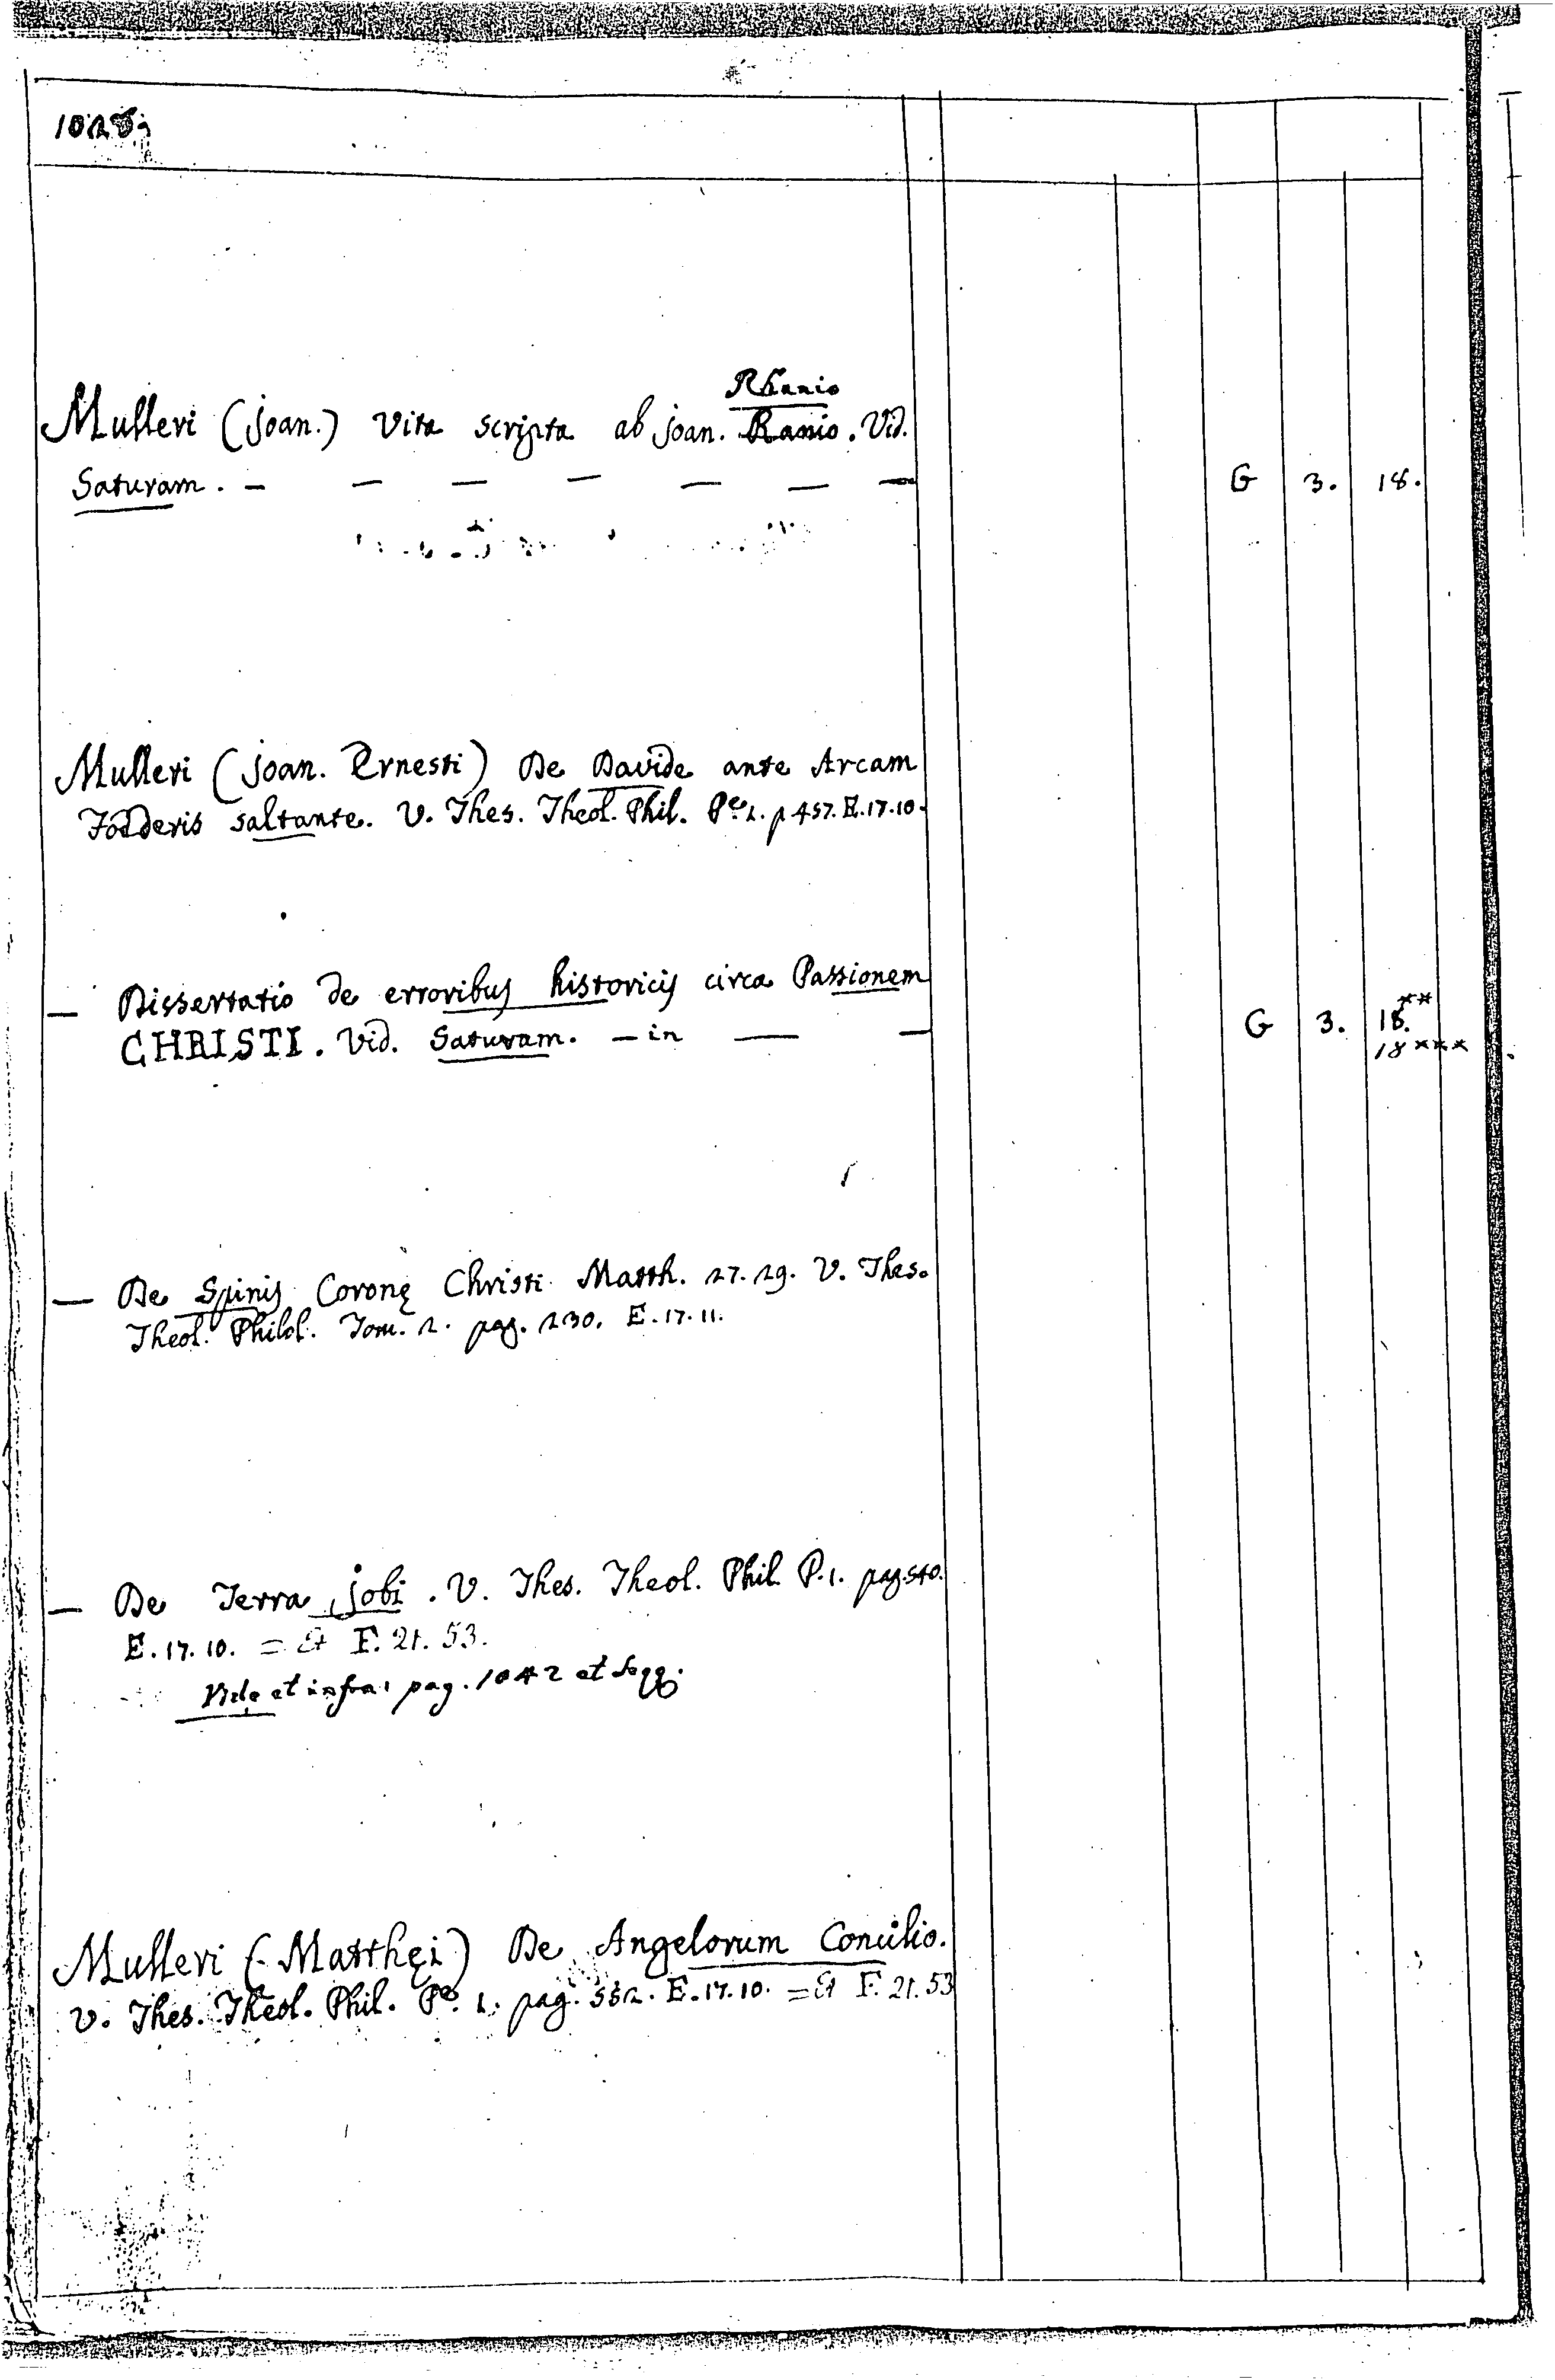 1028.
Rhanio
Mulleri (Joan.) Vita scripta ab Joan. Ranio. Vid.
Saturam. — — — — — — — G 3. 18.
Mulleri (Joan. Ernesti) De Davide ante Arcam
Foederis saltante. V. Thes. Theol. Phil. Pe. 1. p 457. E.17.10.
— Dissertatio de erroribus historicis circa Passionem
CHRISTI. Vid. Saturam. — in — — G 3. 18.**
18***
— De Spinis Coronę Christi Matth. 27. 29. V. Thes.
Theol. Philol. Tom. 2. pag. 230. E.17.11.
— De Terra Jobi. V. Thes. Theol. Phil. P.1. pag. 540.
E.17.10. = Et F. 21. 53.
Vide et infra pag. 1042 et seqq.
Mulleri (Matthęi) De Angelorum Concilio.
V. Thes. Theol. Phil. Pe. 1. pag. 552. E.17.10. = Et F. 21. 53